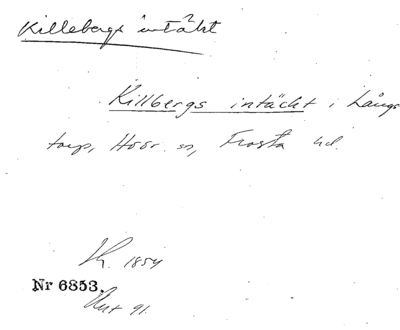 Killebergs intäkt
Killbergs intäckt i Långs
torp, Höör sn, Frosta hd.
1854
Nr 6853.
91.